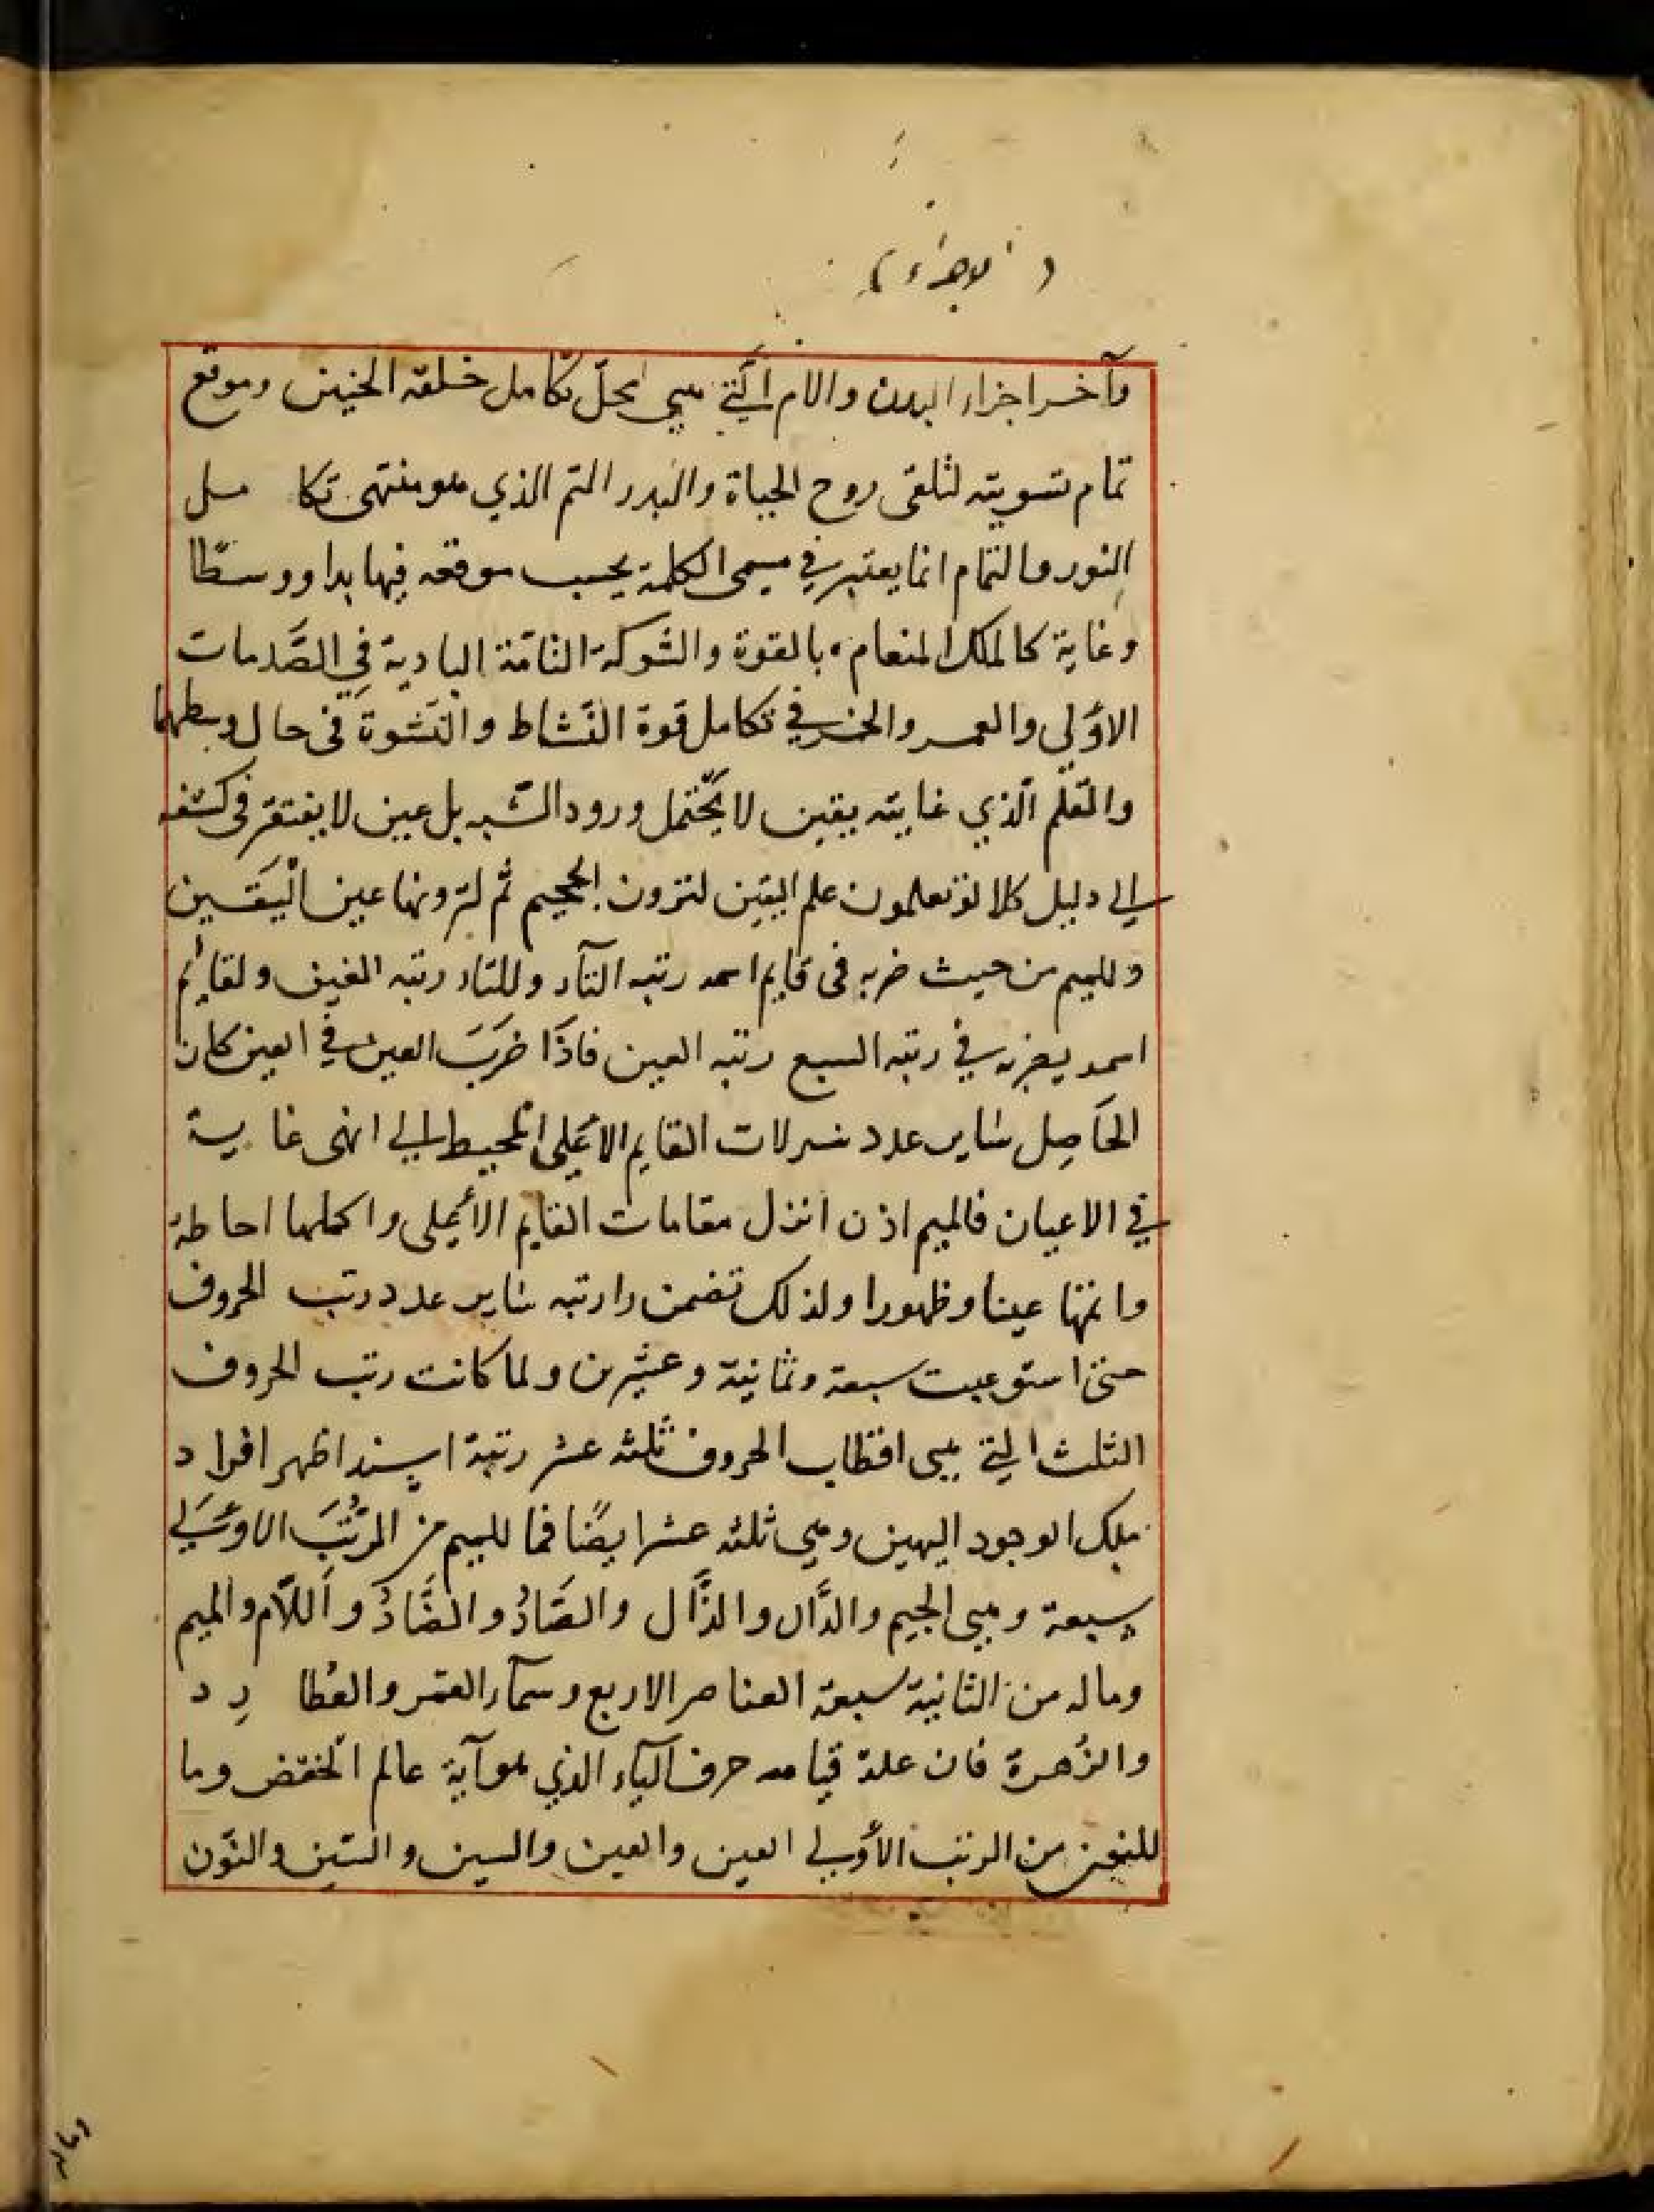 وآخر اجزاء البدن والام الّتي هي محلّ تكامل خلقة الجنين وموقع
تمام تسويته لتلقى روح الحياة والبدر التم الذي هو منتهى تكا مل
النور والتمام انما يعتبر في مسمى الكلمة بحسب موقعه فيها بدا ووسطا
وغاية كالملك المنعام بالقوة والشوكة التامّة البادية في الصَّدمات
الاوّلي والعمر والخمر في تكامل قوة النّشاط والنّشوة في حال وسطهما
والتعلّم الّذي غايته يقين لا يحتمل ورود الشبه بل عين لا يفتقر في كشفه
الى دليل كلا لو تعلمون علم اليقين لترون الجحيم ثم لترونها عين الْيَقين
وللميم من حيث ضربه في قايم اسمه رتبه التآء وللتاء رتبه الغين ولقايم
اسمه بضربه في رتبه السبع رتبه العين فاذَا ضَربَ العين في العين كان
الحَاصِل ساير عدد تنزلات القايم الاعلى المحيط الى انهى غاية
في الاعيان فالميم اذن انزل مقامات القايم الأعلى واكملها احاطة
واتمها عينا وظهورا ولذلك تضمن رتبه ساير عدد رتب الحروف
حتى استوعبت سبعة وثمانية وعشرين ولما كانت رتب الحروف
الثلث التي هي اقطاب الحروف ثلثه عشر رتبة اظهر افراد
بملك الوجود اليهين وهي ثلثه عشر ايضًا فما للميم من الرتُبَ الاوّلى
سبعة وهي الجيم والدَّال والذَّال والصَّادُ والضَّادُ واللاَّم والميم
وماله من الثانية سبعة العناصر الاربع وسمآء القمر والعُطا رِ د
والزُهرة فان علة قيامه حرف اليآء الذي هو آية عالم الخفض وما
للغين من الرتب الأولى العين والغين والسين والشين والنّون